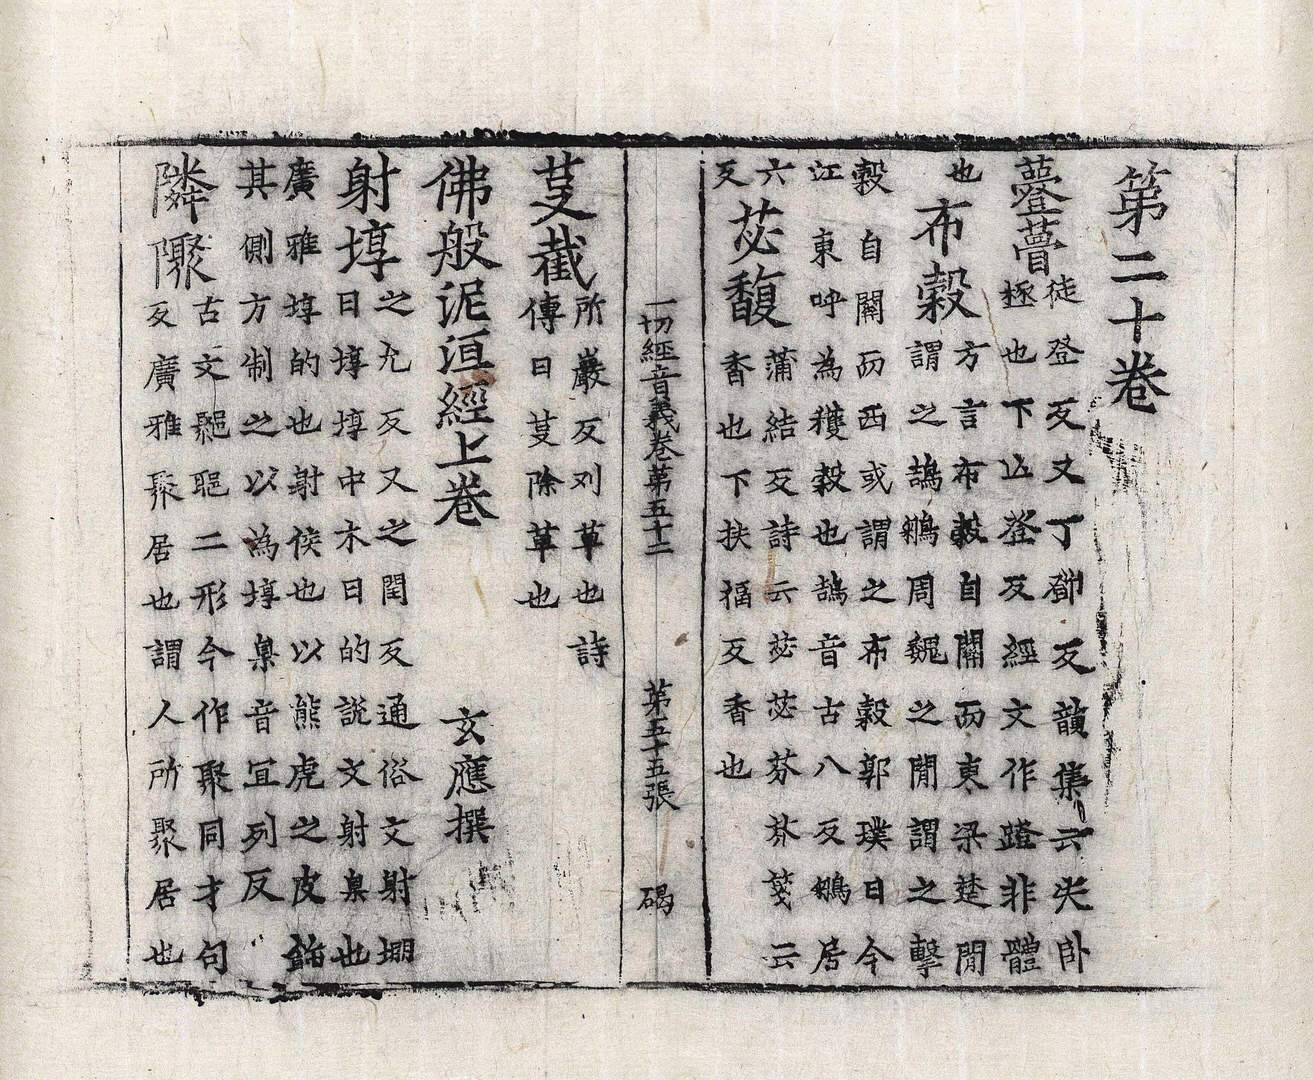 第二十卷
薹薈
徒登反丈丁鄧反韻集云失卧
極也下亾登反經文作蹬非體
也
布穀
方言布穀自關而東梁楚閒
謂之鵠鵴周魏之閒謂之擊
穀自關而西或謂之布穀郭璞曰今
江東呼為穫穀也鵠音古八反鵴居
六
反
苾馥
蒲結反詩云苾苾芬芬箋云
香也下扶福反香也
一切經音義卷第五十二 第五十五張 碣
芟截
所巖反刈草也詩
傳曰芟除草也
佛般泥洹經上卷 玄應撰
射埻
之允反又之閏反通俗文射堋
曰埻埻中木曰的說文射臬也
廣雅埻的也射侯也以熊虎之皮飾
其側方制之以為埻臬音冝列反
隣㗱
古文䣜聏二形今作聚同才句
反廣雅聚居也謂人所聚居也